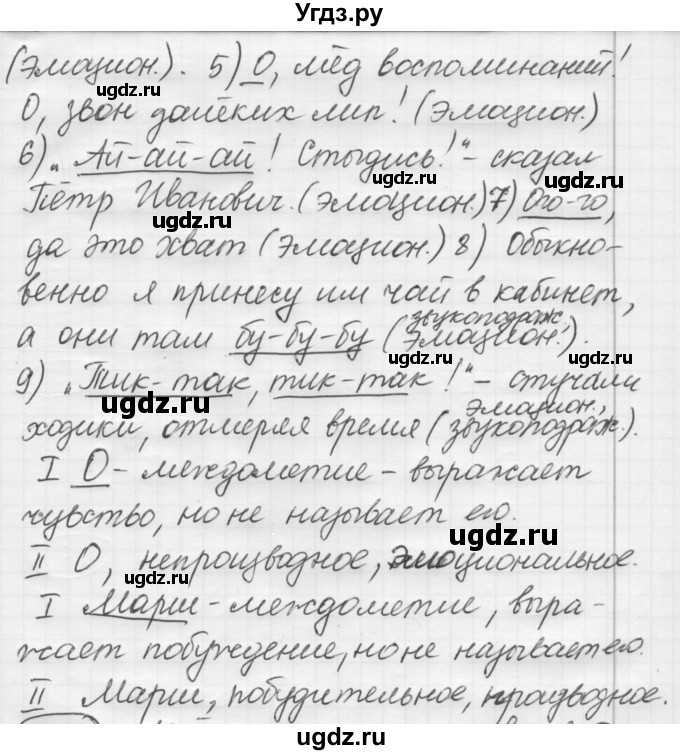 Угдз.ру
(Эмоцион.). 5) О, мёд воспоминаний!
О, звон далёких лип! (Эмоцион.)
ugdz.ru
6) „Ай-ай-ай! Стыдись!“ - сказал
Пётр Иванович. (Эмоцион.) 7) Ого-го,
ugdz.ru ugdz.ru
да это хват (Эмоцион.) 8) Обыкно-
венно я принесу им чай в кабинет,
звукоподраж.,
а они там бу-бу-бу (Эмоцион.).
ugdz.ru ugdz.ru
9) „Тик-так, тик-так!“ - стучали
ugdz.ru
эмоцион.,
ходики, отмеряя время (звукоподраж.).
I О - междометие - выражает
чувство, но не называет его.
ugdz.ru
II О, непроизводное, эмоциональное.
ugdz.ru ugdz.ru
I Марш - междометие, выра-
жает побуждение, но не называет его.
ugdz.ru
II Марш, побудительное, производное.
ugdz.ru